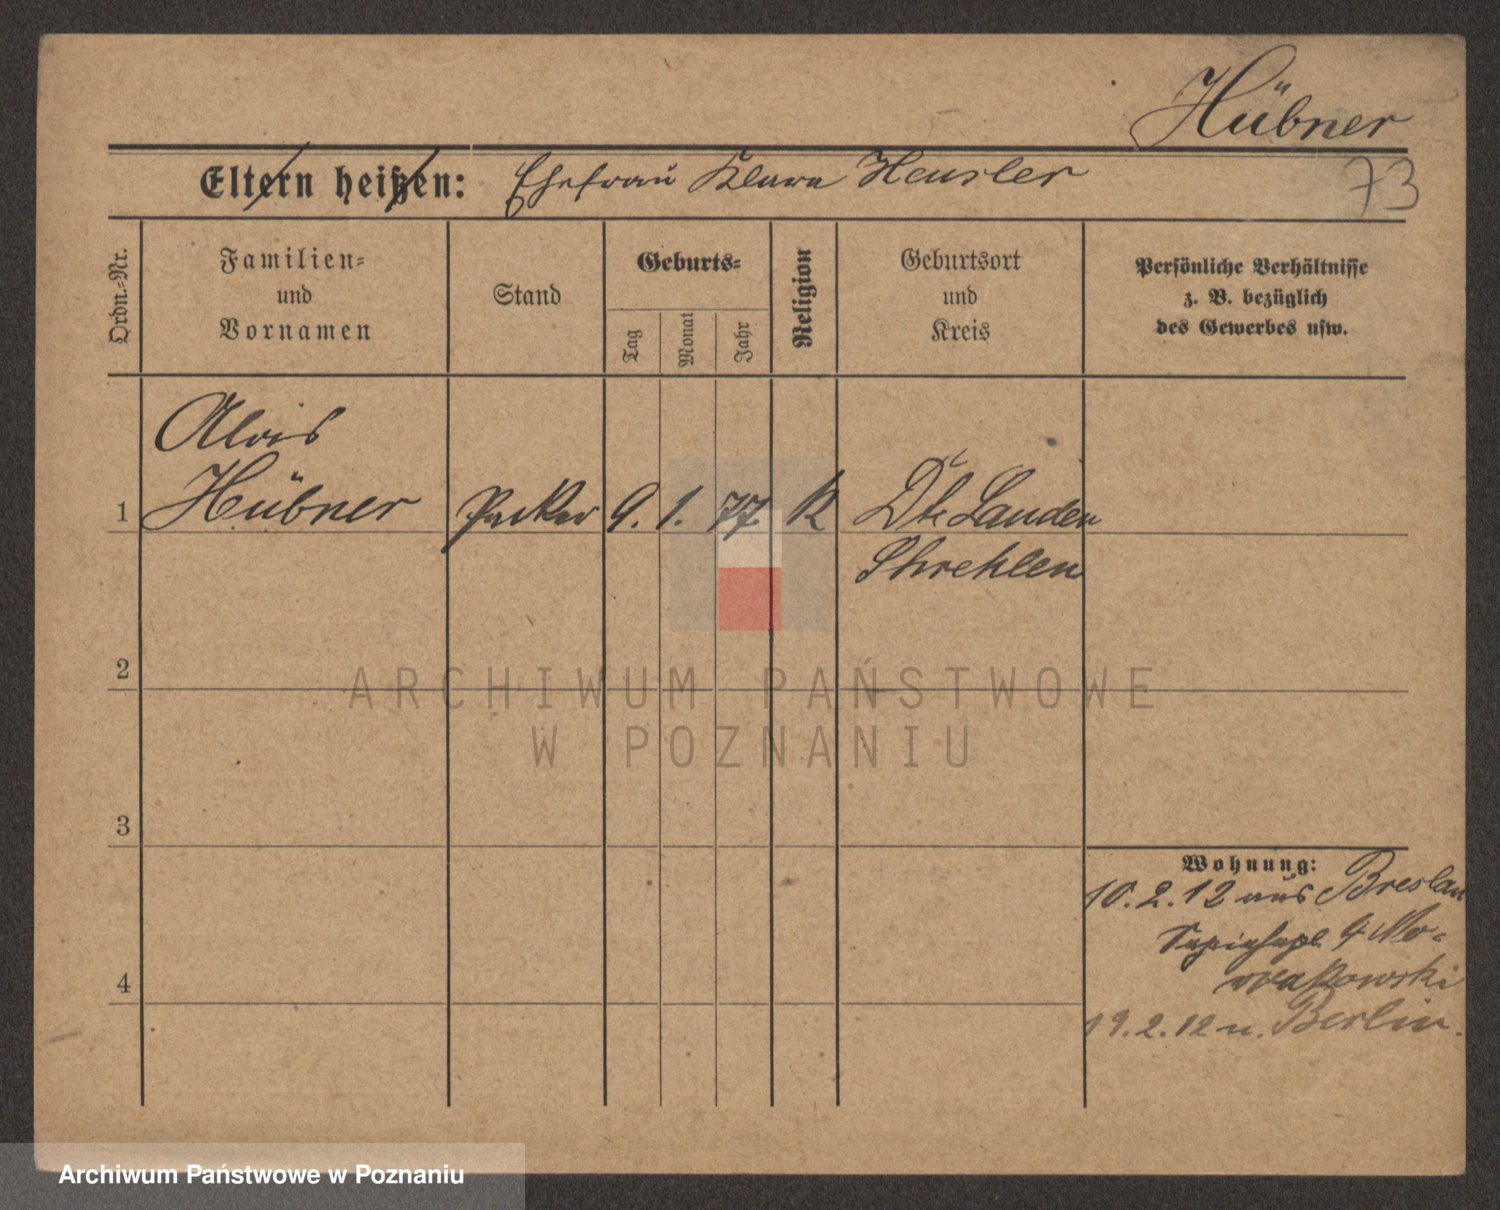 Hübner
73
Eltern heißen: Ehefrau Klara Heusler
Ordn.=Nr.
Familien=
und
Vornamen
Stand
Geburts=
Tag
Monat
Jahr
Religion
Geburtsort
und
Kreis
Persönliche Verhältnisse
z. B. bezüglich
des Gewerbes usw.
Alois
1 Hübner Packer 9. 1. 77. K Dt. Lauden
Strehlen
2
3
4
Wohnung:
10.2.12 aus Breslau
Sapiehapl. 9 No-
wakowski
19.2.12 n. Berlin.
ARCHIWUM PAŃSTWOWE
W POZNANIU
Archiwum Państwowe w Poznaniu